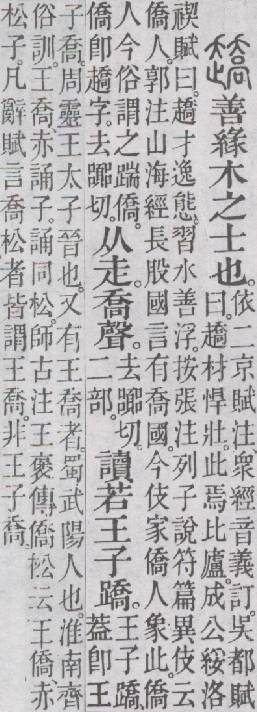 趫善緣木之士也。
依二京賦注、衆經音義訂。吳都賦
曰。趫材悍壯。此焉比廬。成公綏洛
禊賦曰。趫才逸態。習水善浮。按張注列子說符篇異伎云
僑人。郭注山海經長股國言有喬國。今伎家僑人象此。僑
人今俗謂之踹僑。
僑卽趫字。去嚻切。
从走。喬聲。
去嚻切。
二部。
讀若王子蹻。
王子蹻
蓋卽王
子喬。周靈王太子晉也。又有王喬者。蜀武陽人也。淮南齊
俗訓。王喬、赤誦子。誦同松。師古注王褒傳僑松云。王僑赤
松子。凡辭賦言喬松者皆謂王喬。非王子喬。